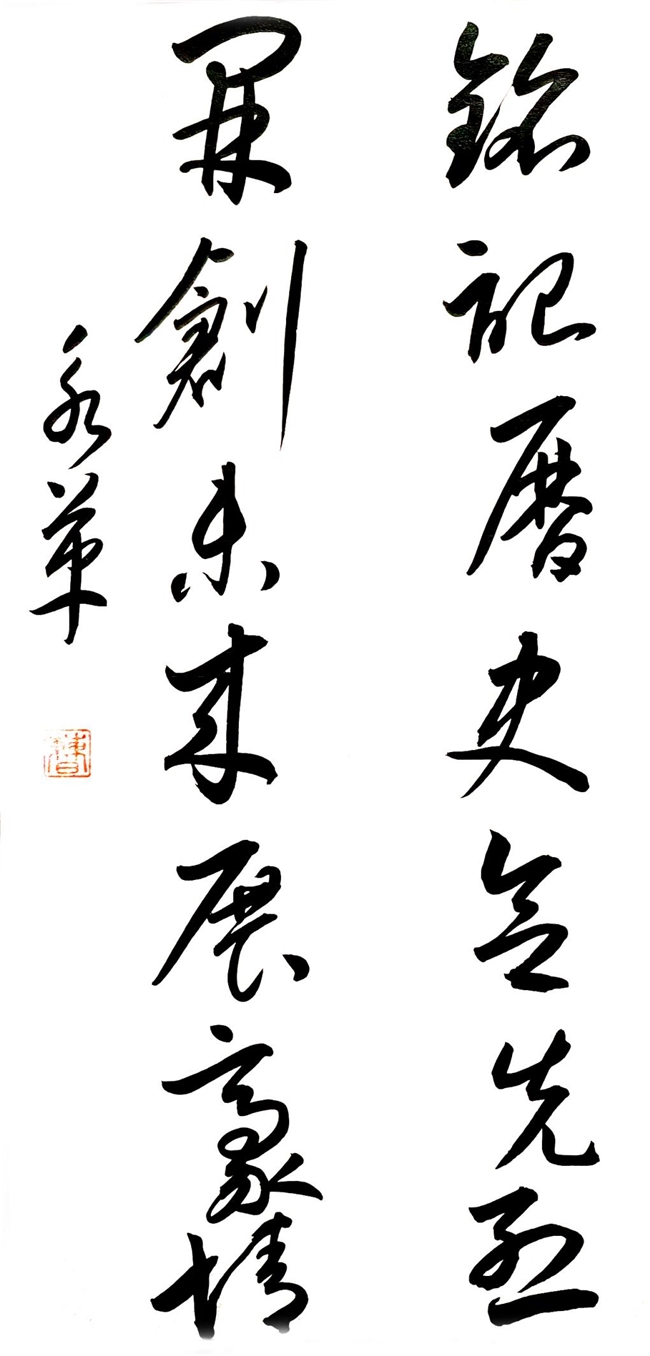 銘記曆史念先烈
開創未來展豪情
永